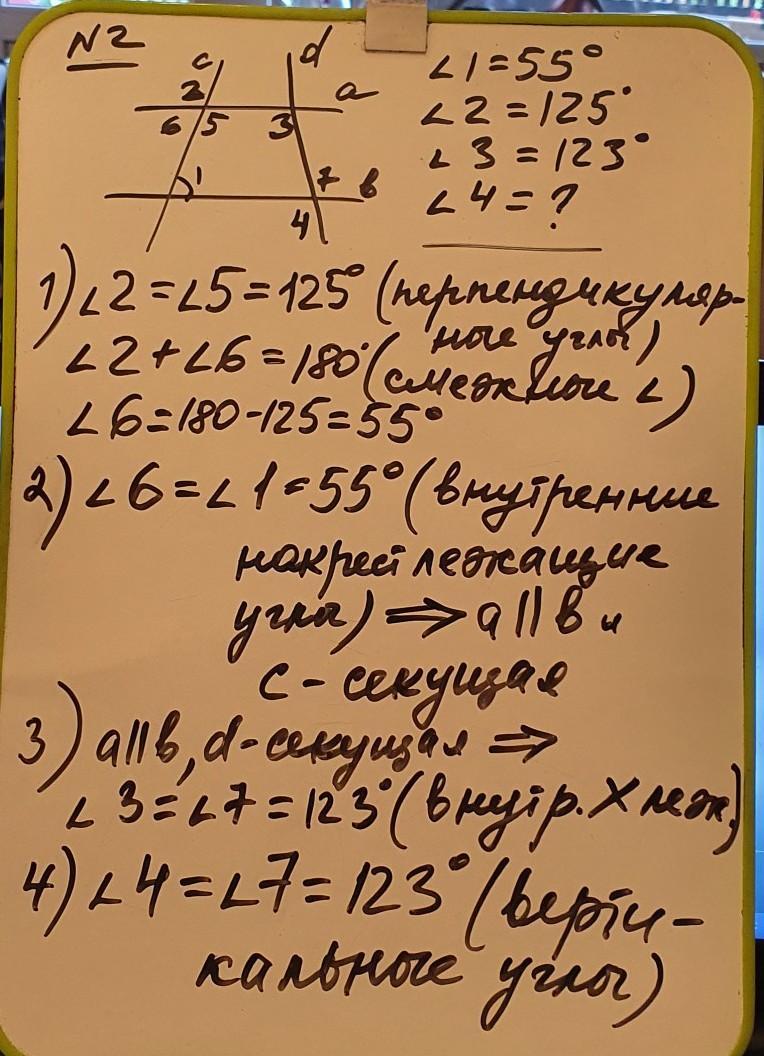 N2
c
d
a
2
6
5
3
1
7
b
4
∠1=55°
∠2=125°
∠3=123°
∠4=?
1)∠2=∠5=125° (перпендикуляр-
ные углы)
∠2+∠6=180° (смежные ∠)
∠6=180-125=55°
2)∠6=∠1=55° (внутренние
накрест лежащие
углы) ⇒ a||b и
c-секущая
3) a||b, d-секущая ⇒
∠3=∠7=123° (внутр. X леж.)
4)∠4=∠7=123° (верти-
кальные углы)